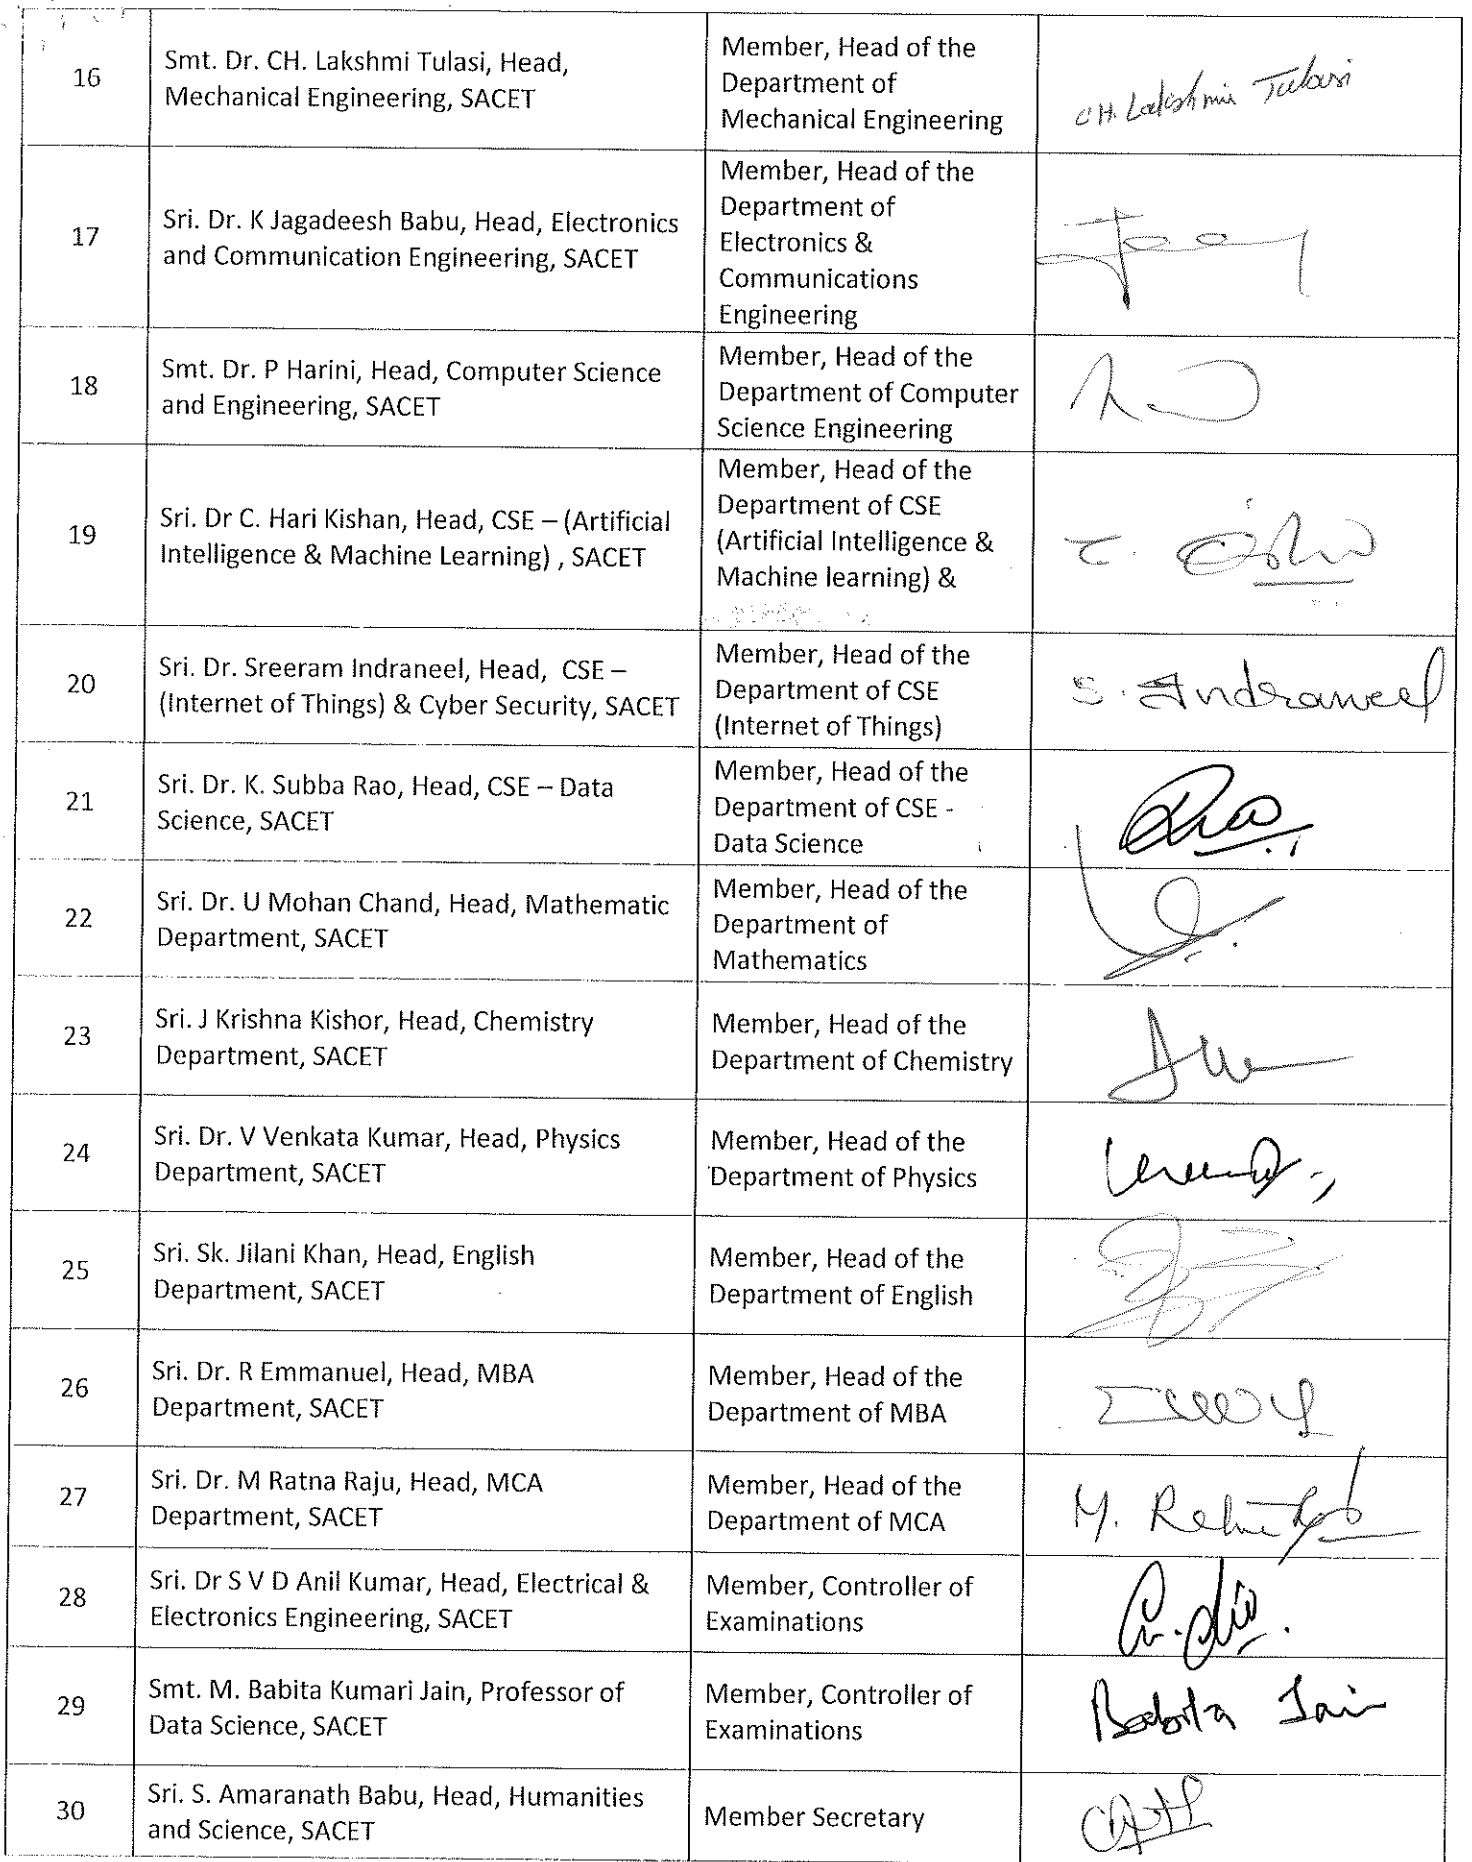 16
Smt. Dr. CH. Lakshmi Tulasi, Head,
Mechanical Engineering, SACET
Member, Head of the
Department of
Mechanical Engineering
CH. Lakshmi Tulasi
17
Sri. Dr. K Jagadeesh Babu, Head, Electronics
and Communication Engineering, SACET
Member, Head of the
Department of
Electronics &
Communications
Engineering
18
Smt. Dr. P Harini, Head, Computer Science
and Engineering, SACET
Member, Head of the
Department of Computer
Science Engineering
19
Sri. Dr C. Hari Kishan, Head, CSE – (Artificial
Intelligence & Machine Learning) , SACET
Member, Head of the
Department of CSE
(Artificial Intelligence &
Machine learning) &
20
Sri. Dr. Sreeram Indraneel, Head, CSE –
(Internet of Things) & Cyber Security, SACET
Member, Head of the
Department of CSE
(Internet of Things)
S. Indraneel
21
Sri. Dr. K. Subba Rao, Head, CSE – Data
Science, SACET
Member, Head of the
Department of CSE -
Data Science
22
Sri. Dr. U Mohan Chand, Head, Mathematic
Department, SACET
Member, Head of the
Department of
Mathematics
23
Sri. J Krishna Kishor, Head, Chemistry
Department, SACET
Member, Head of the
Department of Chemistry
24
Sri. Dr. V Venkata Kumar, Head, Physics
Department, SACET
Member, Head of the
Department of Physics
25
Sri. Sk. Jilani Khan, Head, English
Department, SACET
Member, Head of the
Department of English
26
Sri. Dr. R Emmanuel, Head, MBA
Department, SACET
Member, Head of the
Department of MBA
27
Sri. Dr. M Ratna Raju, Head, MCA
Department, SACET
Member, Head of the
Department of MCA
M.
28
Sri. Dr S V D Anil Kumar, Head, Electrical &
Electronics Engineering, SACET
Member, Controller of
Examinations
29
Smt. M. Babita Kumari Jain, Professor of
Data Science, SACET
Member, Controller of
Examinations
Babita Jain
30
Sri. S. Amaranath Babu, Head, Humanities
and Science, SACET
Member Secretary